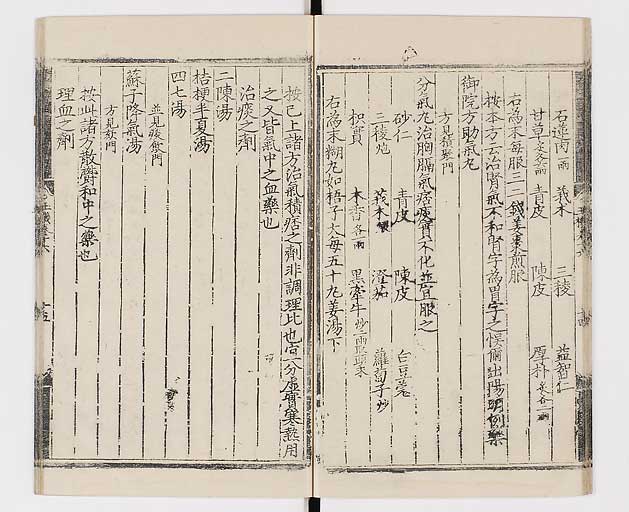 石蓮肉一兩 莪朮 三稜 益智仁
甘草炙各 青皮 陳皮 厚朴炙各一兩
右為末每服三二錢姜棗煎服
按本方云治腎氣不和腎字為胃字之悞偭出陽明例藥
御院方助氣丸
方見積聚門
分氣丸治胸膈氣痞痰實不化並宜服之
砂仁 青皮 陳皮 白豆蔻
三稜炮 莪朮 澄茄 蘿蔔子炒
枳實 木香各一兩 黑牽牛炒二兩取頭末
右為末糊丸如梧子大每五十丸姜湯下
按已上諸方治氣積痞之劑非調理比也宜分虛實寒熱用
之又皆氣中之血藥也
治痰之劑
二陳湯
桔梗半夏湯
四七湯
並見痰飲門
蘇子降氣湯
方見前門
按此諸方散欝和中之藥也
理血之劑